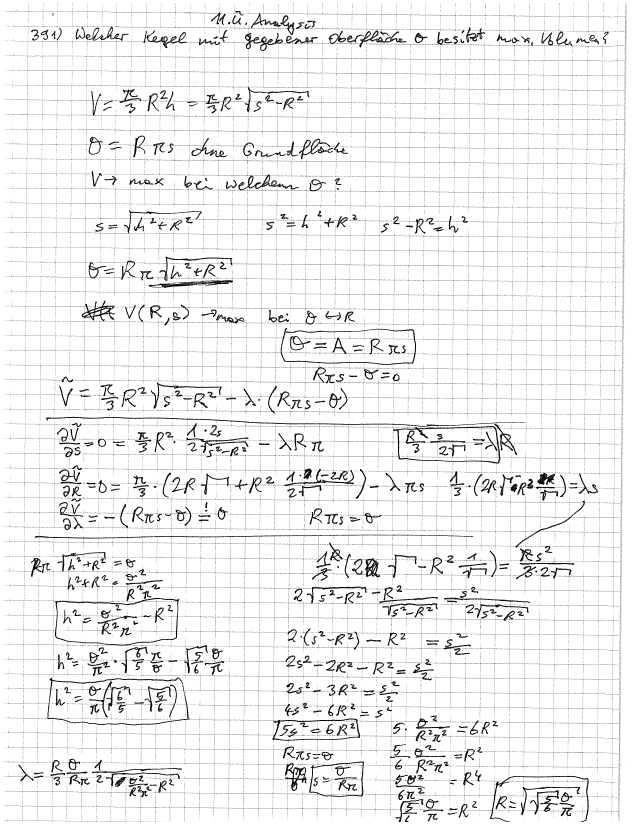 11. Ü. Analysis
391) Welcher Kegel mit gegebener Oberfläche O besitzt max. Volumen?
V = π/3 R²h = π/3 R² √(s²-R²)
O = Rπs ohne Grundfläche
V → max bei welchem O?
s = √(h²+R²) s² = h²+R² s²-R² = h²
O = Rπ √(h²+R²)
V(R,s) → max bei O ↔ R
O = A = Rπs
Rπs - O = 0
Ṽ = π/3 R² √(s²-R²) - λ·(Rπs-O)
∂Ṽ/∂s = 0 = π/3 R² · 1·2s/(2√(s²-R²)) - λRπ
∂Ṽ/∂R = 0 = π/3 · (2R√ + R² 1·(-2R)/(2√)) - λπs
∂Ṽ/∂λ = -(Rπs-O) =! 0 Rπs = O
Rπ √(h²+R²) = O
h²+R² = O²/(R²π²)
h² = O²/(R²π²) - R²
h² = O²/π² · √(6/5) π/O - √(5/6) O/π
h² = O/π (√(6/5) - √(5/6))
λ = R/3 O/(Rπ) 1/(2√(O²/(R²π²)-R²))
2√(s²-R²) - R²/√(s²-R²) = s²/(2√(s²-R²))
2·(s²-R²) - R² = s²/2
2s²-2R²-R² = s²/2
2s²-3R² = s²/2
4s²-6R² = s²
5s² = 6R²
Rπs = O
s = O/(Rπ)
5· O²/(R²π²) = 6R²
5/6 O²/(R²π²) = R²
5O²/(6π²) = R⁴
√(5/6) O/π = R²